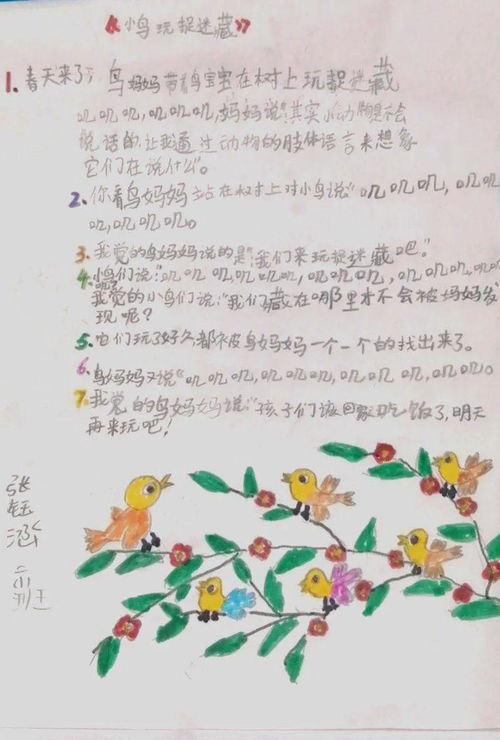 《小鸟玩捉迷藏》
1. 春天来了,鸟妈妈带着鸟宝宝在树上玩捉迷藏
叽叽叽,叽叽叽,妈妈说:其实小动物是不会
说话的,让我通过动物的肢体语言来想象
它们在说什么。
2. 你看鸟妈妈站在树上对小鸟说“叽叽叽,叽叽
叽,叽叽叽。
3. 我觉的鸟妈妈说的是“我们来玩捉迷藏吧。”
4. 小鸟们说:“叽叽叽,叽叽叽,叽叽叽,叽叽叽,叽叽
叽叽。
我觉的小鸟们说:“我们藏在哪里才不会被妈妈发
现呢?
5. 他们玩了好久都被鸟妈妈一个一个的找出来了。
6. 鸟妈妈又说“叽叽叽,叽叽叽,叽叽叽,叽叽叽。
7. 我觉的鸟妈妈说:“孩子们该回家吃饭了,明天
再来玩吧!
张
钰
涵
二